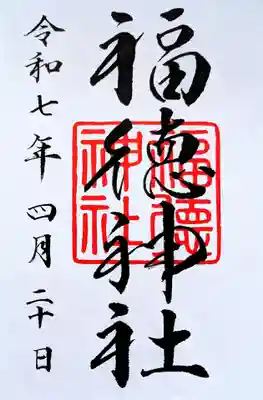 福徳神社
福德神社
令和七年 四月 二十日